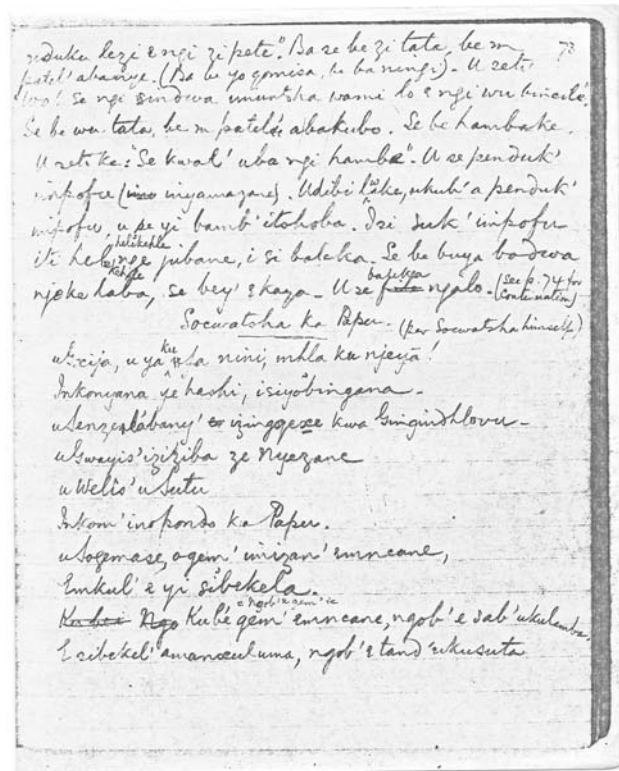 nduku lezi engi zi pete". Ba se be zi tata, be m 73
patel' abanye. (Ba be yo gomisa, be baningi). U se ti
"Wo! Se ngi sindwa umuntsha wami lo engi wu bincile".
Se be wu tata, be m patela abakubo. Se be hambake.
U se ti ke: "Se kwal' uba ngi hambe". U se penduk'
impofu (inyamazane). Udibi lake, ukub' a penduk'
mpofu, u se yi bamb' itohoba. Izi suk' impofu
iti helikehle kehle nge jubane, i si baleka. Se be buya bodwa
njeke laba, se bey' ekaya. U se bajikya ngalo. (See p. 74 for continuation)
Socwatsha ka Papu. (per Socwatsha himself)
uGcija, u ya ku ta nini, mhla ku njeya!
Inkonyana ye hashi, isiyobingana.
uSenzelabany' izingqexe kwa Gingindhlovu.
uGwayis' iziziba ze Nyezane
uWelis' uSutu
Inkom' inopondo ka Papu.
uSogemase, ogem' imizan' emncane,
Emkul' e yi sibekela.
Ku be Ngo Kube gem' emncane, ngob' e sab' ukulamba.
E sibekel' amanxuluma, ngob' e tand' ukusuta